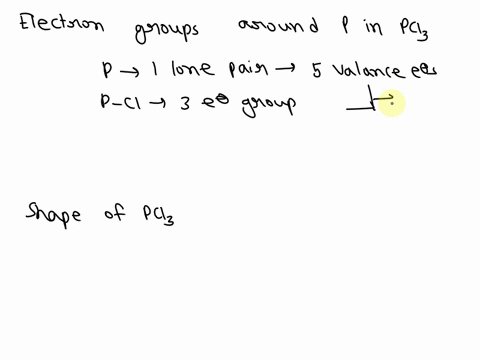 Electron groups around P in PCl₃
P → 1 lone pair → 5 valance e⊖s
P-Cl → 3 e⊖ group
Shape of PCl₃